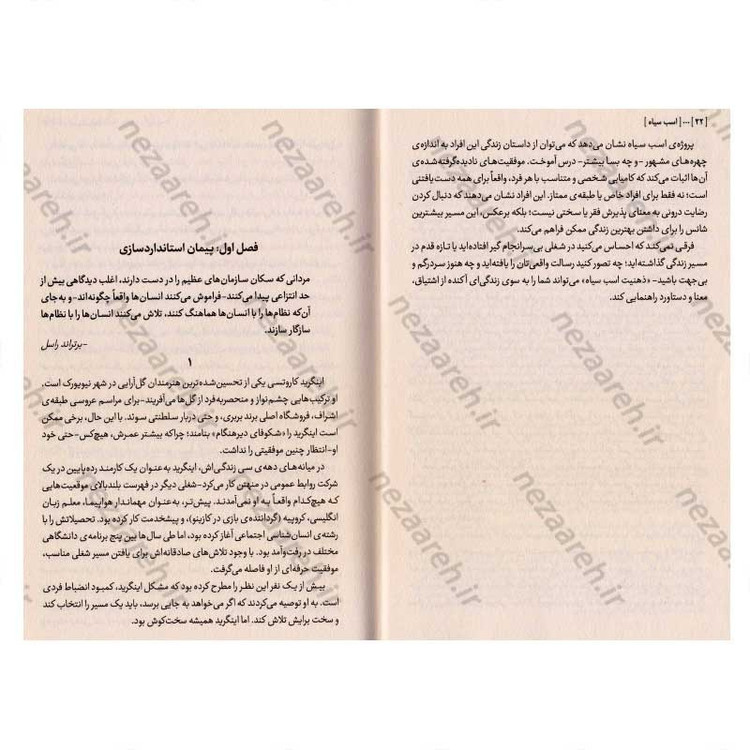 [ ۲۲ ] ... [ اسب سیاه ]
پروژه‌ی اسب سیاه نشان می‌دهد که می‌توان از داستان زندگی این افراد به اندازه‌ی
چهره‌های مشهور -و چه بسا بیشتر- درس آموخت. موفقیت‌های نادیده‌گرفته‌شده‌ی
آن‌ها اثبات می‌کند که کامیابی شخصی و متناسب با هر فرد، واقعاً برای همه دست یافتنی
است؛ نه فقط برای افراد خاص یا طبقه‌ی ممتاز. این افراد نشان می‌دهند که دنبال کردن
رضایت درونی به معنای پذیرش فقر یا سختی نیست؛ بلکه برعکس، این مسیر بیشترین
شانس را برای داشتن بهترین زندگی ممکن فراهم می‌کند.
فرقی نمی‌کند که احساس می‌کنید در شغلی بی‌سرانجام گیر افتاده‌اید یا تازه قدم در
مسیر زندگی گذاشته‌اید؛ چه تصور کنید رسالت واقعی‌تان را یافته‌اید و چه هنوز سردرگم و
بی‌جهت باشید- «ذهنیت اسب سیاه» می‌تواند شما را به سوی زندگی‌ای آکنده از اشتیاق،
معنا و دستاورد راهنمایی کند.
فصل اول: پیمان استانداردسازی
مردانی که سکان سازمان‌های عظیم را در دست دارند، اغلب دیدگاهی بیش از
حد انتزاعی پیدا می‌کنند-فراموش می‌کنند انسان‌ها واقعاً چگونه‌اند-و به جای
آن‌که نظام‌ها را با انسان‌ها هماهنگ کنند، تلاش می‌کنند انسان‌ها را با نظام‌ها
سازگار سازند.
-برتراند راسل
۱
اینگرید کاروتسی یکی از تحسین‌شده‌ترین هنرمندان گل‌آرایی در شهر نیویورک است.
او ترکیب‌هایی چشم‌نواز و منحصربه‌فرد از گل‌ها می‌آفریند-برای مراسم عروسی طبقه‌ی
اشراف، فروشگاه اصلی برند بربری، و حتی دربار سلطنتی سوئد. با این حال، برخی ممکن
است اینگرید را «شکوفای دیرهنگام» بنامند؛ چراکه بیشتر عمرش، هیچ‌کس-حتی خود
او-انتظار چنین موفقیتی را نداشت.
در میانه‌های دهه‌ی سی زندگی‌اش، اینگرید به‌عنوان یک کارمند رده‌پایین در یک
شرکت روابط عمومی در منهتن کار می‌کرد-شغلی دیگر در فهرست بلندبالای موقعیت‌هایی
که هیچ‌کدام واقعاً به او نمی‌آمدند. پیش‌تر، به‌عنوان مهماندار هواپیما، معلم زبان
انگلیسی، کروپیه (گرداننده‌ی بازی در کازینو)، و پیشخدمت کار کرده بود. تحصیلاتش را با
رشته‌ی انسان‌شناسی اجتماعی آغاز کرده بود، اما طی سال‌ها بین پنج برنامه‌ی دانشگاهی
مختلف در رفت‌وآمد بود. با وجود تلاش‌های صادقانه‌اش برای یافتن مسیر شغلی مناسب،
موفقیت حرفه‌ای از او فاصله می‌گرفت.
بیش از یک نفر این نظر را مطرح کرده بود که مشکل اینگرید، کمبود انضباط فردی
است. به او توصیه می‌کردند که اگر می‌خواهد به جایی برسد، باید یک مسیر را انتخاب کند
و سخت برایش تلاش کند. اما اینگرید همیشه سخت‌کوش بود.
nezaareh.ir
nezaareh.ir
nezaareh.ir
nezaareh.ir
nezaareh.ir
nezaareh.ir
nezaareh.ir
nezaareh.ir
nezaareh.ir